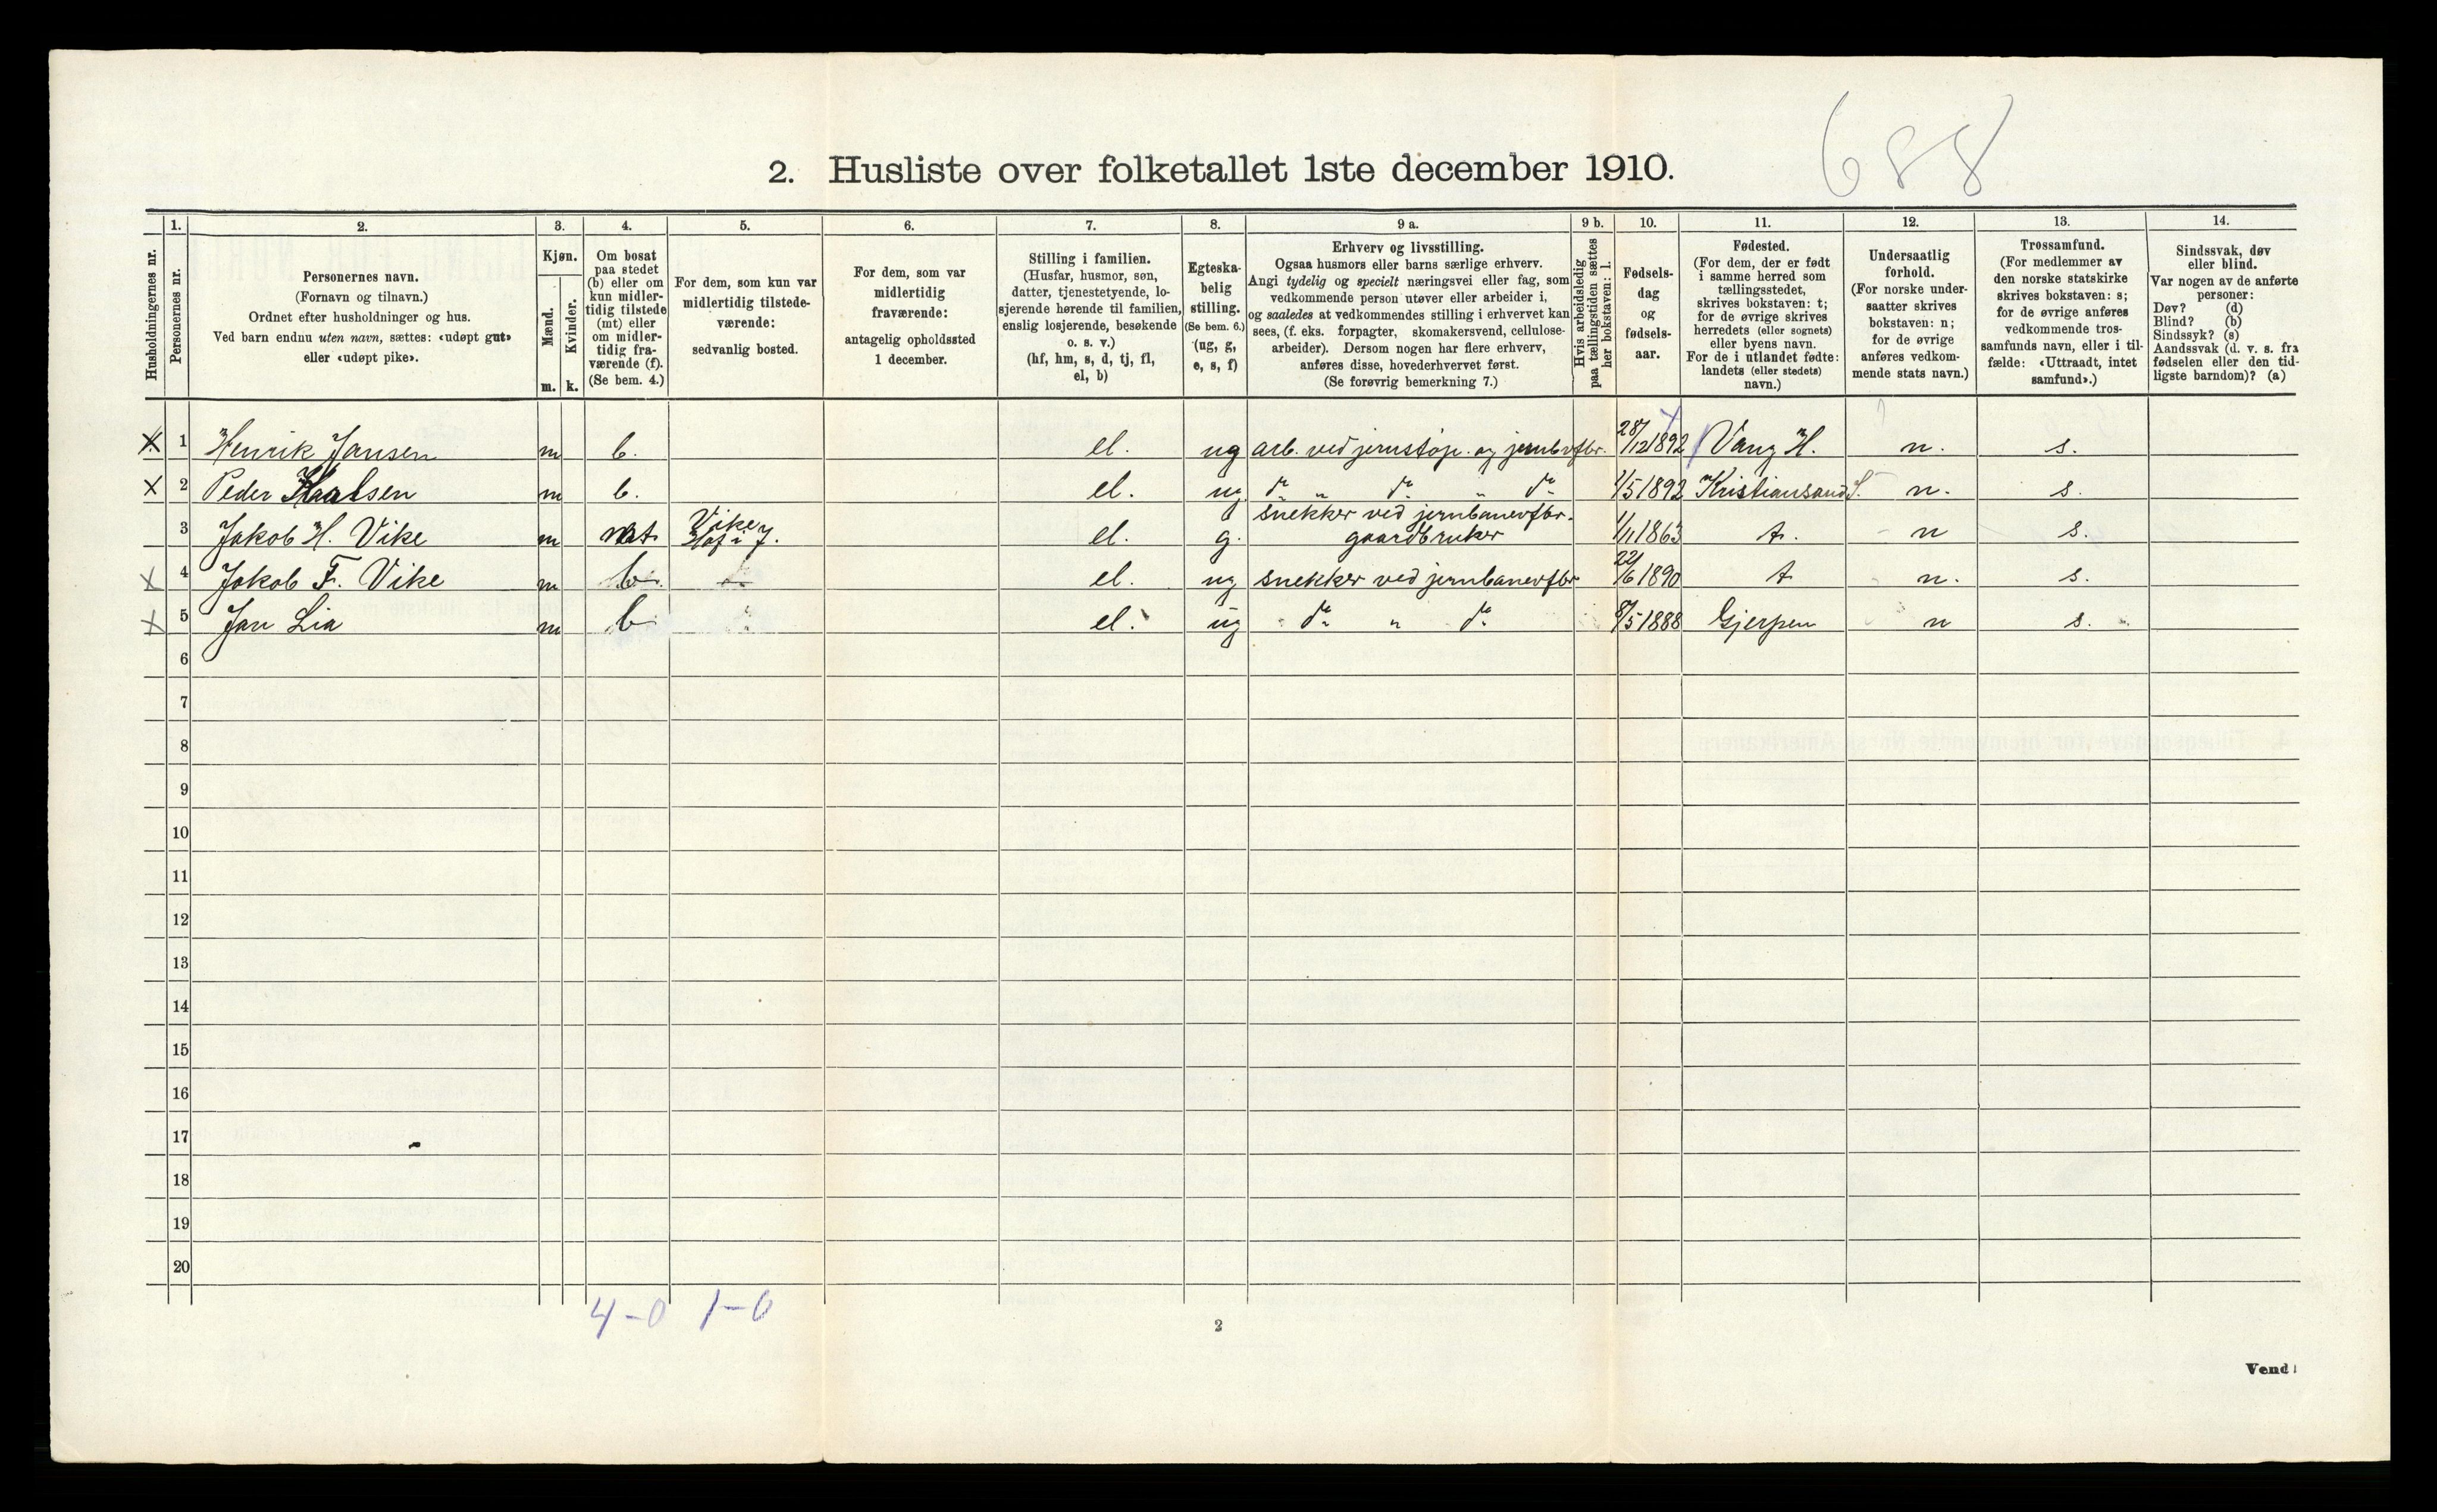 688
2. Husliste over folketallet 1ste december 1910.
Husholdningernes nr.
1. Personernes nr.
2. Personernes navn.
(Fornavn og tilnavn.)
Ordnet efter husholdninger og hus.
Ved barn endnu uten navn, sættes: «udøpt gut»
eller «udøpt pike».
3. Kjøn.
Mænd. m.
Kvinder. k.
4. Om bosat
paa stedet
(b) eller om
kun midler-
tidig tilstede
(mt) eller
om midler-
tidig fra-
værende (f).
(Se bem. 4.)
5. For dem, som kun var
midlertidig tilstede-
værende:
sedvanlig bosted.
6. For dem, som var
midlertidig
fraværende:
antagelig opholdssted
1 december.
7. Stilling i familien.
(Husfar, husmor, søn,
datter, tjenestetyende, lo-
sjerende hørende til familien,
enslig losjerende, besøkende
o. s. v.)
(hf, hm, s, d, tj, fl,
el, b)
8. Egteska-
belig
stilling.
(Se bem. 6.)
(ug, g,
e, s, f)
9 a. Erhverv og livsstilling.
Ogsaa husmors eller barns særlige erhverv.
Angi tydelig og specielt næringsvei eller fag, som
vedkommende person utøver eller arbeider i,
og saaledes at vedkommendes stilling i erhvervet kan
sees, (f. eks. forpagter, skomakersvend, cellulose-
arbeider). Dersom nogen har flere erhverv,
anføres disse, hovederhvervet først.
(Se forøvrig bemerkning 7.)
9 b. Hvis arbeidsledig
paa tællingstiden sættes
her bokstaven: l.
10. Fødsels-
dag
og
fødsels-
aar.
11. Fødested.
(For dem, der er født
i samme herred som
tællingsstedet,
skrives bokstaven: t;
for de øvrige skrives
herredets (eller sognets)
eller byens navn.
For de i utlandet fødte:
landets (eller stedets)
navn.)
12. Undersaatlig
forhold.
(For norske under-
saatter skrives
bokstaven: n;
for de øvrige
anføres vedkom-
mende stats navn.)
13. Trossamfund.
(For medlemmer av
den norske statskirke
skrives bokstaven: s;
for de øvrige anføres
vedkommende tros-
samfunds navn, eller i til-
fælde: «Uttraadt, intet
samfund».)
14. Sindssvak, døv
eller blind.
Var nogen av de anførte
personer:
Døv? (d)
Blind? (b)
Sindssyk? (s)
Aandssvak (d. v. s. fra
fødselen eller den tid-
ligste barndom)? (a)
X 1 Henrik Jansen m b. el. ug arb. ved jernstøp. og jernbvfbr. 28/12 1892 Vang H. n. s.
X 2 Peder m b. el. ug do " do " do 1/5 1892 Kristiansand S. n. s.
3 Jakob H. Vike m mt Vike Hof i J. el. g. snekker ved jernbanevfbr. gaardbruker 1/11 1863 t. n s.
X 4 Jakob F. Vike m b. el. ug snekker ved jernbanevfbr 22/6 1890 t n. s.
X 5 Jan Lia m b el. ug do " do 8/5 1888 Gjerpen n s.
6
7
8
9
10
11
12
13
14
15
16
17
18
19
20
4-0 1-0
2
Vend!